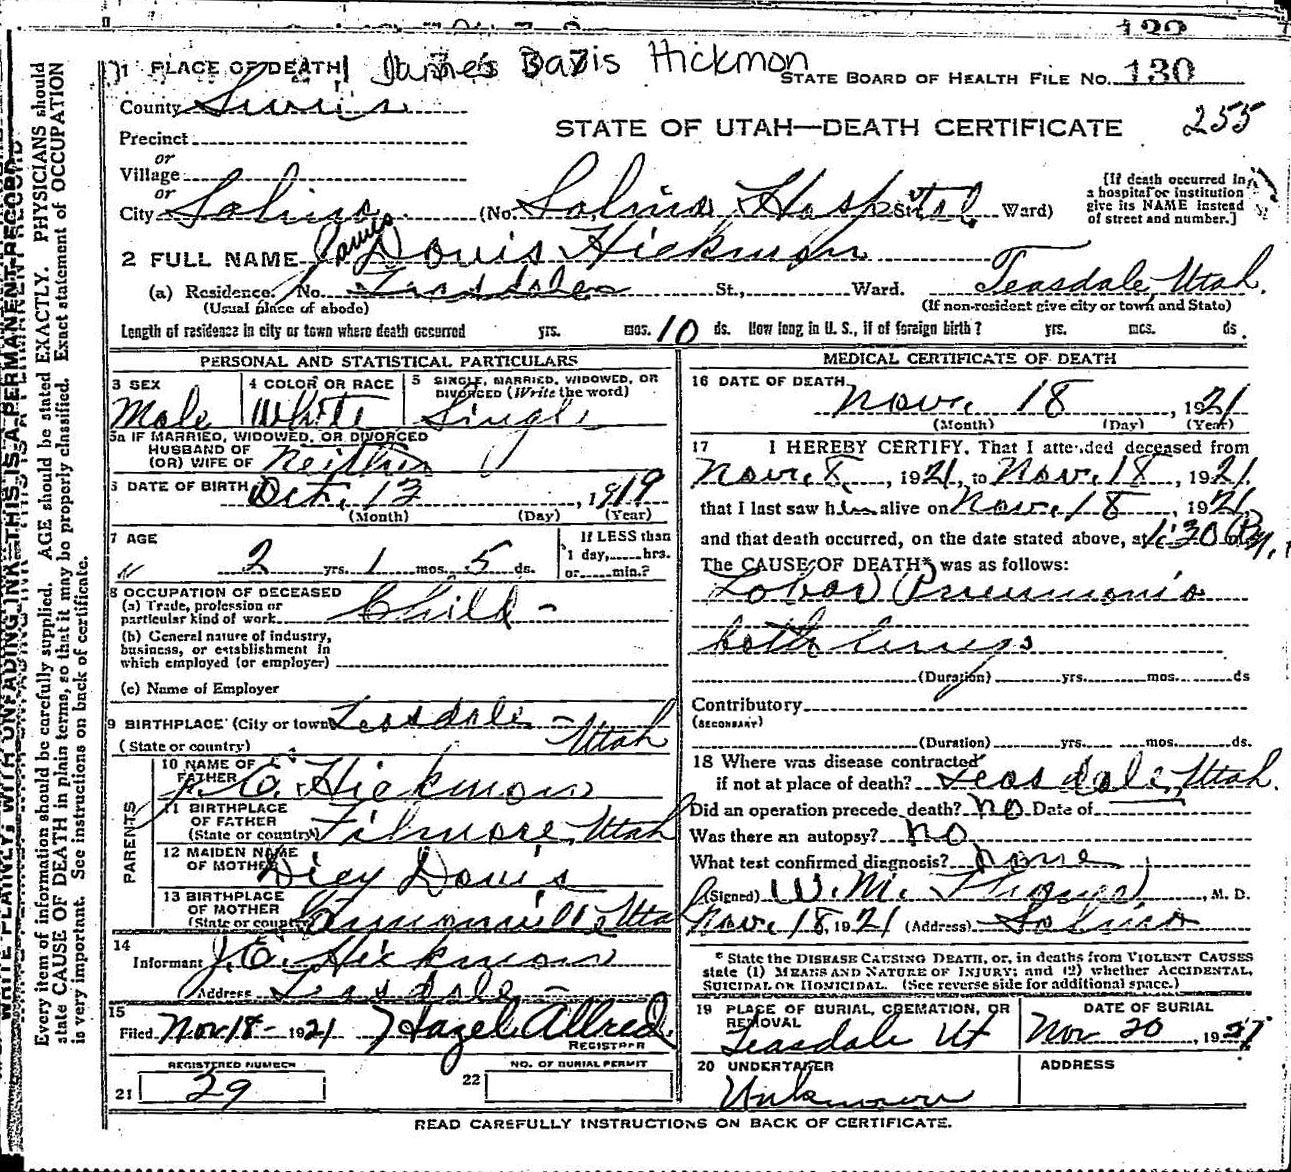 1 PLACE OF DEATH James Davis Hickmon STATE BOARD OF HEALTH FILE NO. 130
County Sevier
STATE OF UTAH—DEATH CERTIFICATE 255
Precinct
or
Village
or
City Salina (No. Salina Hospital St., Ward)
[If death occurred in a hospital or institution give its NAME instead of street and number.]
2 FULL NAME James Davis Hickmon
(a) Residence. No. Teasdale St., Ward. Teasdale, Utah.
(Usual place of abode) (If non-resident give city or town and State)
Length of residence in city or town where death occurred yrs. mos. 10 ds. How long in U. S., if of foreign birth? yrs. mos. ds.
PERSONAL AND STATISTICAL PARTICULARS
3 SEX 4 COLOR OR RACE 5 SINGLE, MARRIED, WIDOWED, OR DIVORCED (Write the word)
Male White Single
5a IF MARRIED, WIDOWED, OR DIVORCED
HUSBAND OF
(OR) WIFE OF neither
6 DATE OF BIRTH Oct. 13, 1919
(Month) (Day) (Year)
7 AGE 2 yrs. 1 mos. 5 ds.
If LESS than
1 day, hrs.
or min.?
8 OCCUPATION OF DECEASED
(a) Trade, profession or
particular kind of work Child -
(b) General nature of industry,
business, or establishment in
which employed (or employer)
(c) Name of Employer
9 BIRTHPLACE (City or town) Teasdale -
(State or country) Utah
PARENTS
10 NAME OF
FATHER J. E. Hickmon
11 BIRTHPLACE
OF FATHER
(State or country) Filmore, Utah
12 MAIDEN NAME
OF MOTHER Dicy Davis
13 BIRTHPLACE
OF MOTHER
(State or country) Cannonville Utah
14
Informant J. E. Hickmon
Address Teasdale -
15
Filed Nov 18 - 1921 Hazel Allred
REGISTRAR
REGISTERED NUMBER NO. OF BURIAL PERMIT
21 29 22
MEDICAL CERTIFICATE OF DEATH
16 DATE OF DEATH
Nov. 18, 1921
(Month) (Day) (Year)
17 I HEREBY CERTIFY, That I attended deceased from
Nov. 8, 1921, to Nov. 18, 1921
that I last saw him alive on Nov. 18, 1921
and that death occurred, on the date stated above, at 1:30 P.m.
The CAUSE OF DEATH* was as follows:
Lobar Pneumonia
both lungs
(Duration) yrs. mos. ds
Contributory
(SECONDARY)
(Duration) yrs. mos. ds.
18 Where was disease contracted
if not at place of death? Teasdale, Utah.
Did an operation precede death? no Date of
Was there an autopsy? no
What test confirmed diagnosis? none
(Signed) W. M. , M. D.
Nov. 18, 1921 (Address) Salina
* State the DISEASE CAUSING DEATH, or, in deaths from VIOLENT CAUSES
state (1) MEANS AND NATURE OF INJURY; and (2) whether ACCIDENTAL,
SUICIDAL OR HOMICIDAL. (See reverse side for additional space.)
19 PLACE OF BURIAL, CREMATION, OR REMOVAL DATE OF BURIAL
Teasdale Ut Nov 20, 1921
20 UNDERTAKER ADDRESS
Unknown
READ CAREFULLY INSTRUCTIONS ON BACK OF CERTIFICATE.
WRITE PLAINLY, WITH UNFADING INK—THIS IS A PERMANENT RECORD
Every item of information should be carefully supplied. AGE should be stated EXACTLY. PHYSICIANS should
state CAUSE OF DEATH in plain terms, so that it may be properly classified. Exact statement of OCCUPATION
is very important. See instructions on back of certificate.